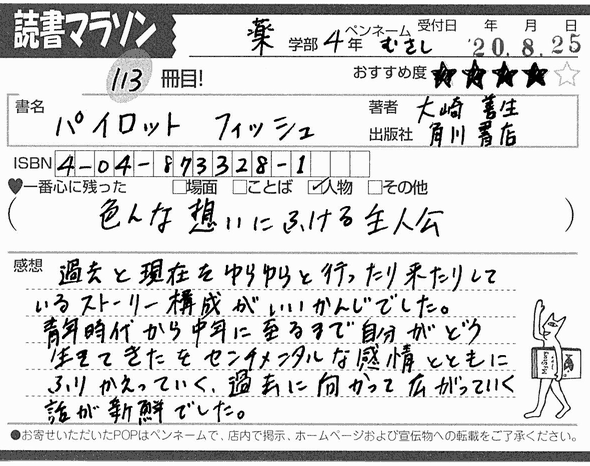 読書マラソン
薬 学部 4年 ペンネーム むさし 受付日 '20.8.25 年 月 日
113 冊目!
おすすめ度 ★★★★☆
書名 パイロット フィッシュ
著者 大崎 善生
出版社 角川書店
ISBN 4-04-873328-1
♥一番心に残った □場面 □ことば ☑人物 □その他
(色んな想いにふける主人公)
感想 過去と現在をゆらゆらと行ったり来たりして
いるストーリー構成がいいかんじでした。
青年時代から中年に至るまで自分がどう
生きてきたをセンチメンタルな感情とともに
ふりかえっていく、過去に向かって広がっていく
話が新鮮でした。
●お寄せいただいたPOPはペンネームで、店内で掲示、ホームページおよび宣伝物への転載をご了承ください。